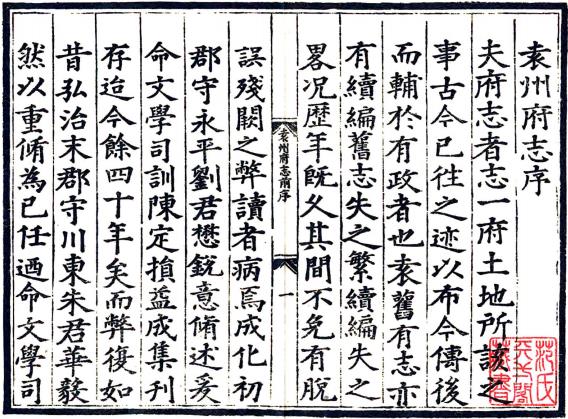 袁州府志序
夫府志者志一府土地所該之
事古今已往之迹以布今傳後
而輔於有政者也袁舊有志亦
有續編舊志失之繁續編失之
畧况歷年既久其間不免有脫
袁州府志前序
一
誤殘闕之弊讀者病焉成化初
郡守永平劉君懋銳意脩述爰
命文學司訓陳定損益成集刊
存迨今餘四十年矣而弊復如
昔弘治末郡守川東朱君華毅
然以重脩為已任迺命文學司
范氏
天一閣
藏書